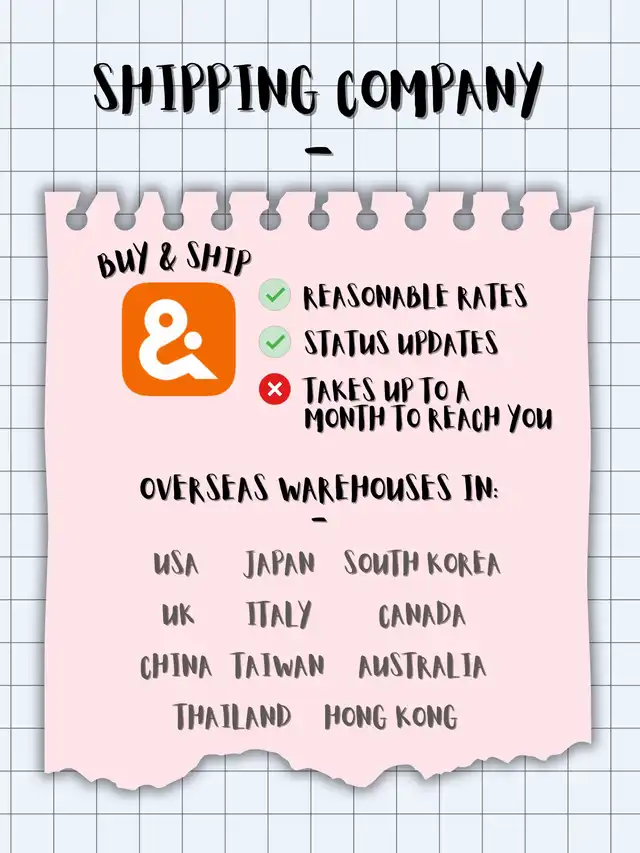 SHIPPING COMPANY
-
BUY & SHIP
&
REASONABLE RATES
STATUS UPDATES
TAKES UP TO A
MONTH TO REACH YOU
OVERSEAS WAREHOUSES IN:
-
USA JAPAN SOUTH KOREA
UK ITALY CANADA
CHINA TAIWAN AUSTRALIA
THAILAND HONG KONG